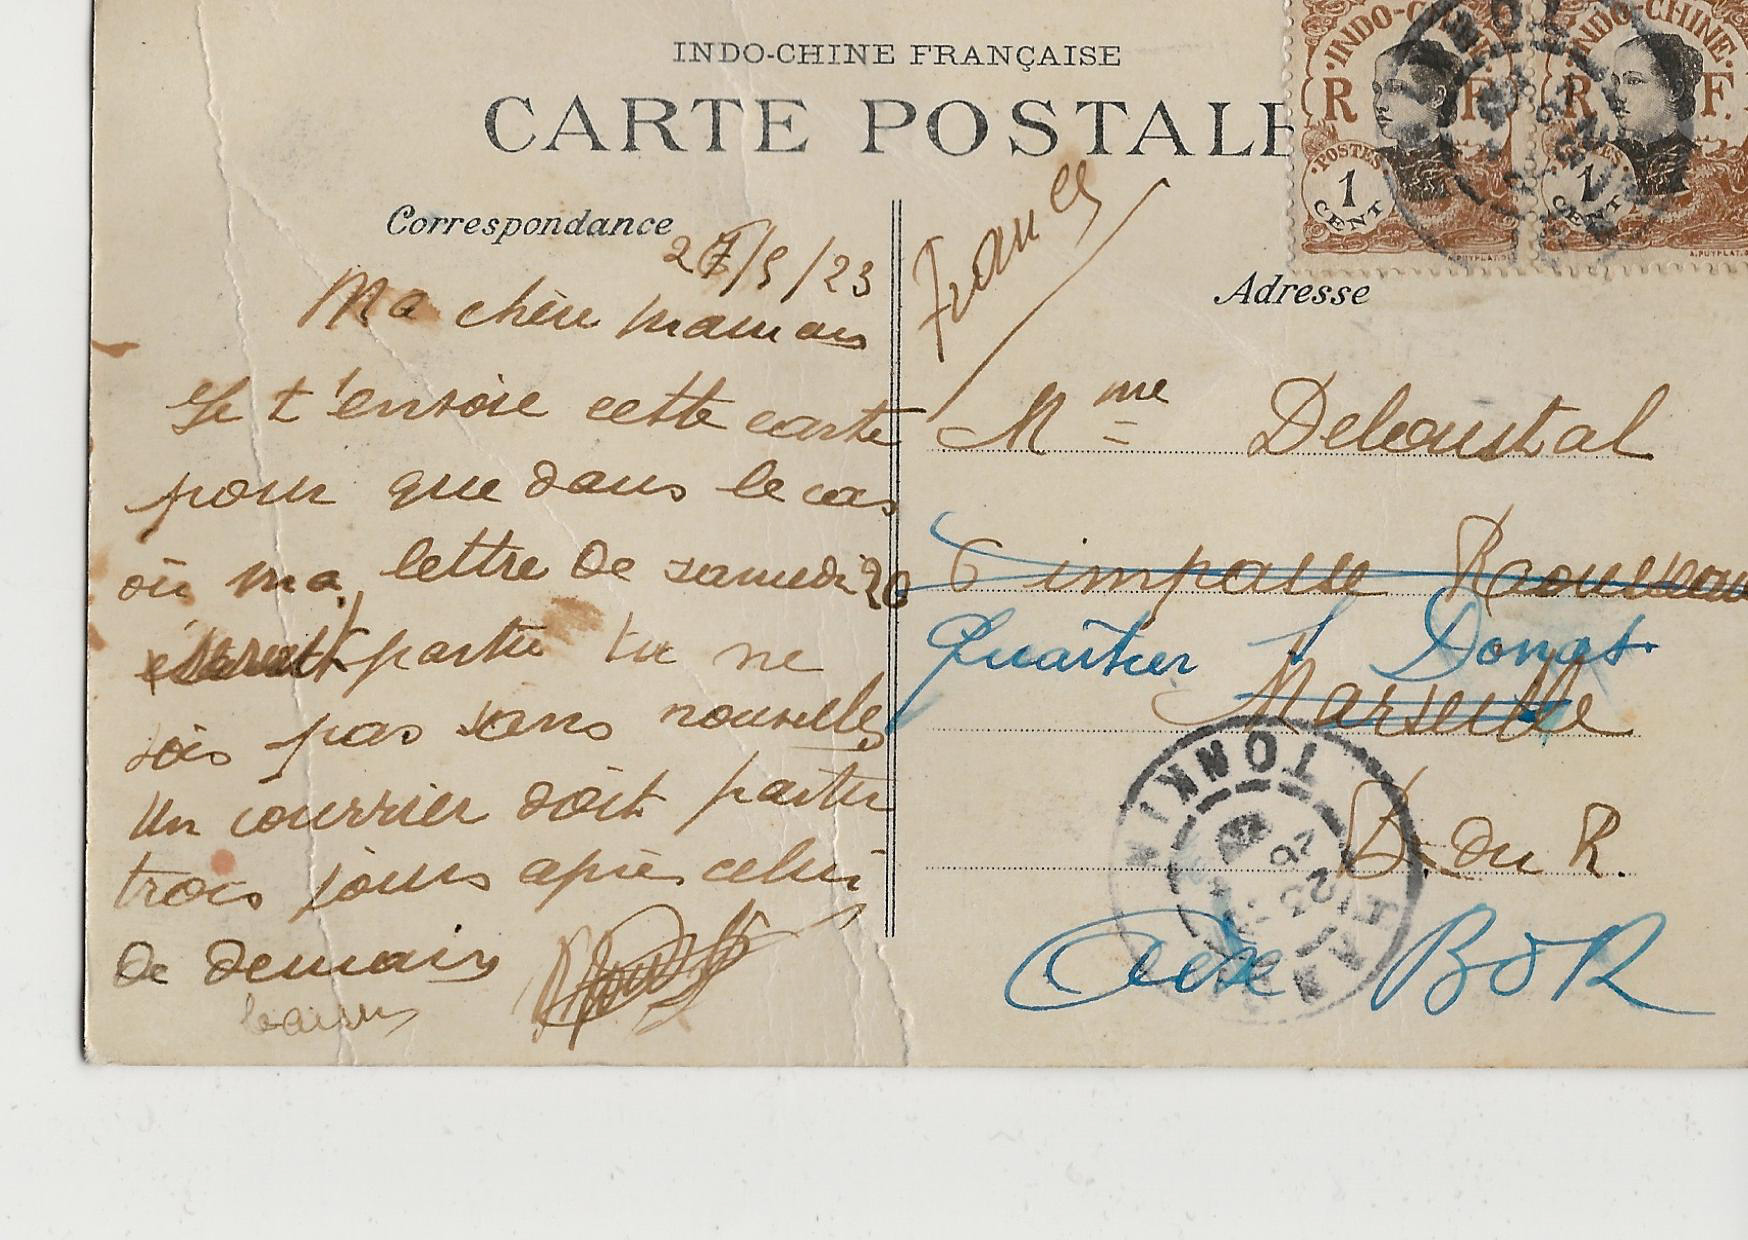 INDO-CHINE FRANÇAISE
CARTE POSTALE
INDO-CHINE
R F
POSTES
1
CENT
INDO-CHINE
R F.
POSTES
1
CENT
Correspondance
27/5/23
Ma chère maman
Je t'envoie cette carte
pour que dans le cas
où ma lettre de samedi 26
partie tu ne
sois pas sans nouvelles
Un courrier doit partir
trois jours après celui
de demain
baisers
France
Adresse
Mme Deloustal
6 impasse
Quartier St Donat
Marseille
B. du R.
Aix BDR
TONKIN
26
23